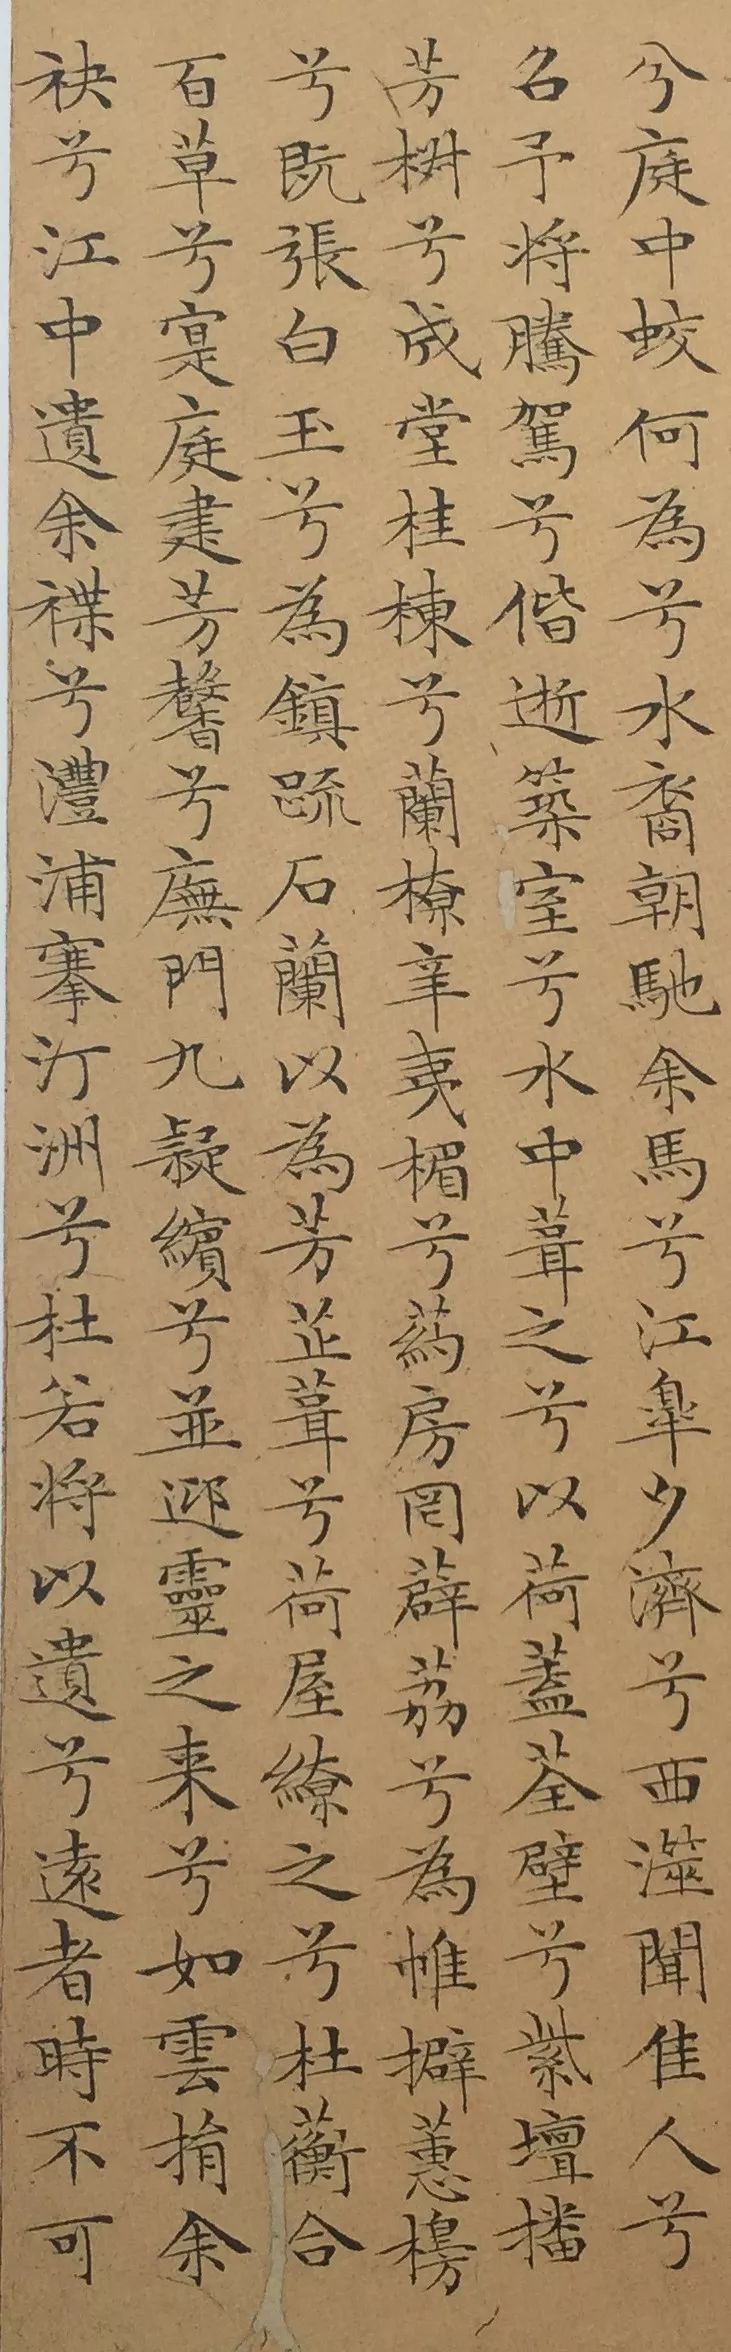 兮庭中蛟何為兮水裔朝馳余馬兮江皋夕濟兮西澨聞佳人兮
召予将騰駕兮偕逝築室兮水中葺之兮以荷蓋荃壁兮紫壇播
芳椒兮成堂桂棟兮蘭橑辛夷楣兮葯房罔薜荔兮為帷擗蕙櫋
兮既張白玉兮為鎮疏石蘭以為芳芷葺兮荷屋繚之兮杜蘅合
百草兮寔庭建芳馨兮廡門九疑繽兮並迎靈之来兮如雲捐余
袂兮江中遺余褋兮澧浦搴汀洲兮杜若将以遺兮遠者時不可